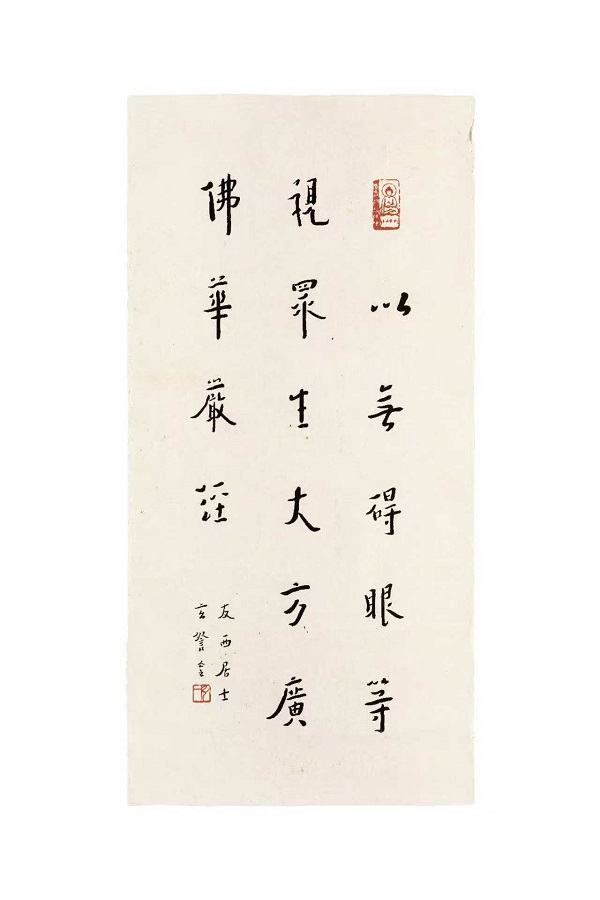 以無碍眼等
視眾生大方廣
佛華嚴經
友西居士
玄